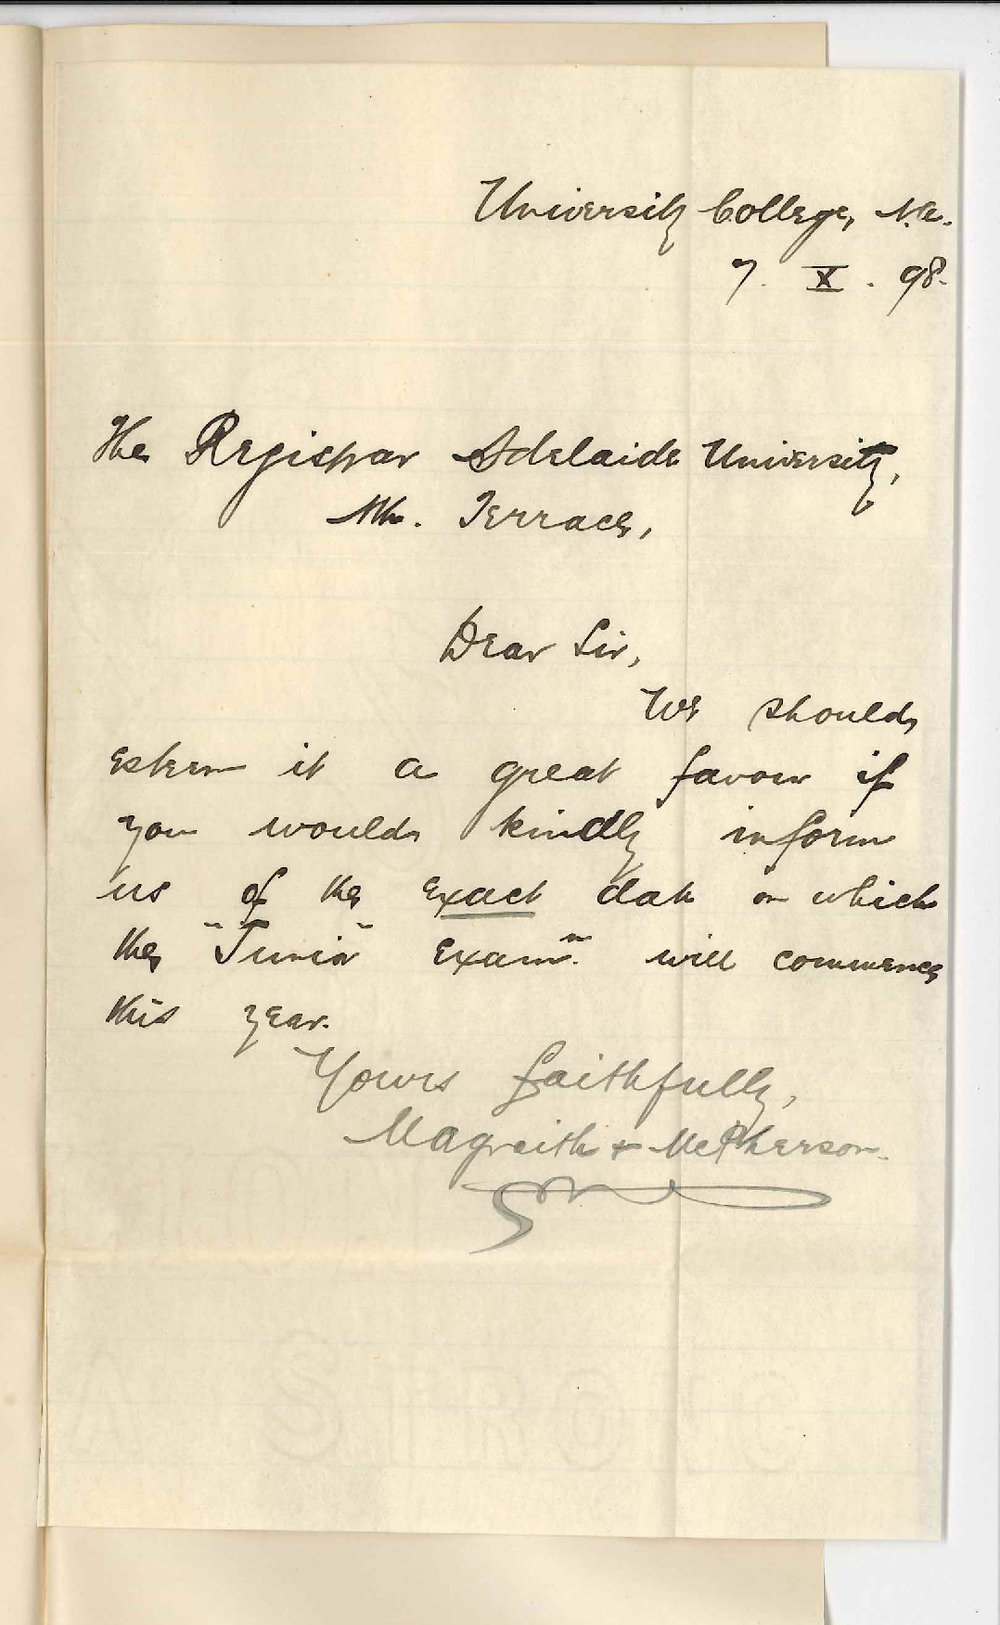 University College, N.A.
7. X. 98.
The Registrar Adelaide University,
Nth. Terrace,
Dear Sir,
We should
esteem it a great favour if
you would kindly inform
us of the exact date on which
the "Junior" Examn. will commence
this year.
Yours faithfully,
Magraith & McPherson.